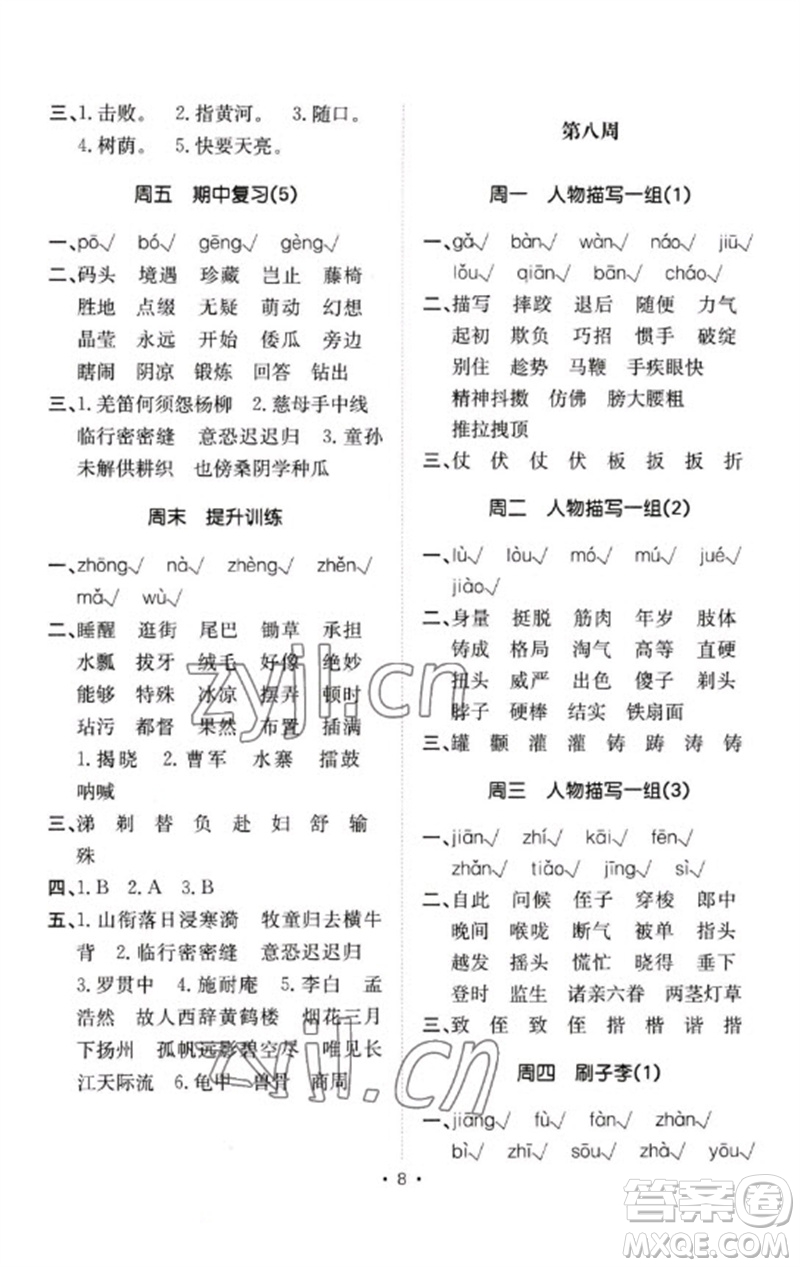 三、1.击败。 2.指黄河。 3.随口。
4.树荫。 5.快要天亮。
周五 期中复习(5)
一、pō√ bó√ gēng√ gèng√
二、码头 境遇 珍藏 岂止 藤椅
胜地 点缀 无疑 萌动 幻想
晶莹 永远 开始 倭瓜 旁边
瞎闹 阴凉 锻炼 回答 钻出
三、1.羌笛何须怨杨柳 2.慈母手中线
临行密密缝 意恐迟迟归 3.童孙
未解供耕织 也傍桑阴学种瓜
周末 提升训练
一、zhōng√ nà√ zhèng√ zhěn√
mǎ√ wù√
二、睡醒 逛街 尾巴 锄草 承担
水瓢 拔牙 绒毛 好像 绝妙
能够 特殊 冰凉 摆弄 顿时
玷污 都督 果然 布置 填满
1.揭晓 2.曹军 水寨 擂鼓
呐喊
三、涕 剃 替 负 赴 妇 舒 输
殊
四、1.B 2.A 3.B
五、1.山衔落日浸寒漪 牧童归去横牛
背 2.临行密密缝 意恐迟迟归
3.罗贯中 4.施耐庵 5.李白 孟
浩然 故人西辞黄鹤楼 烟花三月
下扬州 孤帆远影碧空尽 唯见长
江天际流 6.龟甲 兽骨 商周
第八周
周一 人物描写一组(1)
一、gǎ√ bàn√ wàn√ náo√ jiū√
lǒu√ qiān√ bān√ cháo√
二、描写 摔跤 退后 随便 力气
起初 欺负 巧招 惯手 破绽
别住 趁势 马鞭 手疾眼快
精神抖擞 仿佛 膀大腰粗
推拉拽顶
三、仗 伏 仗 伏 板 扳 扳 折
周二 人物描写一组(2)
一、lù√ lòu√ mó√ mú√ jué√
jiào√
二、身量 挺脱 筋肉 年岁 肢体
铸成 格局 淘气 高等 直硬
扭头 威严 出色 傻子 剃头
脖子 硬棒 结实 铁扇面
三、罐 颧 灌 灌 铸 踌 涛 铸
周三 人物描写一组(3)
一、jiān√ zhí√ kāi√ fēn√
zhǎn√ tiǎo√ jīng√ sì√
二、自此 问候 侄子 穿梭 郎中
晚间 喉咙 断气 被单 指头
越发 摇头 慌忙 晓得 垂下
登时 监生 诸亲六眷 两茎灯草
三、致 侄 致 侄 揩 楷 谐 揩
周四 刷子李(1)
一、jiāng√ fù√ fàn√ zhàn√
bì√ shī√ sōu√ zhà√ yōu√
• 8 •
zyjl.cn
zyjl.cn
答案卷
MXQE.COM